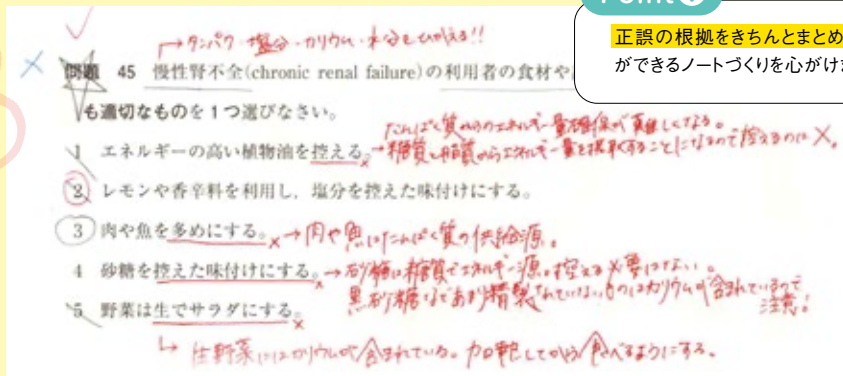 Point
正誤の根拠をきちんとまとめ
ができるノートづくりを心がけ
→タンパク・塩分・カリウム・水分をひかえる!!
問題 45 慢性腎不全(chronic renal failure)の利用者の食材や
も適切なものを1つ選びなさい。
たんぱく質からのエネルギー量確保が難しくなる。
1 エネルギーの高い植物油を控える。×→糖質と脂質からエネルギー量を摂取することになるので控えるのは×。
2 レモンや香辛料を利用し，塩分を控えた味付けにする。
3 肉や魚を多めにする。×→肉や魚はたんぱく質の供給源。
4 砂糖を控えた味付けにする。×→砂糖は糖質でエネルギー源。控える必要はない。
黒砂糖などあまり精製されていないものはカリウムが含まれているので
注意!
5 野菜は生でサラダにする。×
↳生野菜にはカリウムが含まれている。加熱してから食べるようにする。